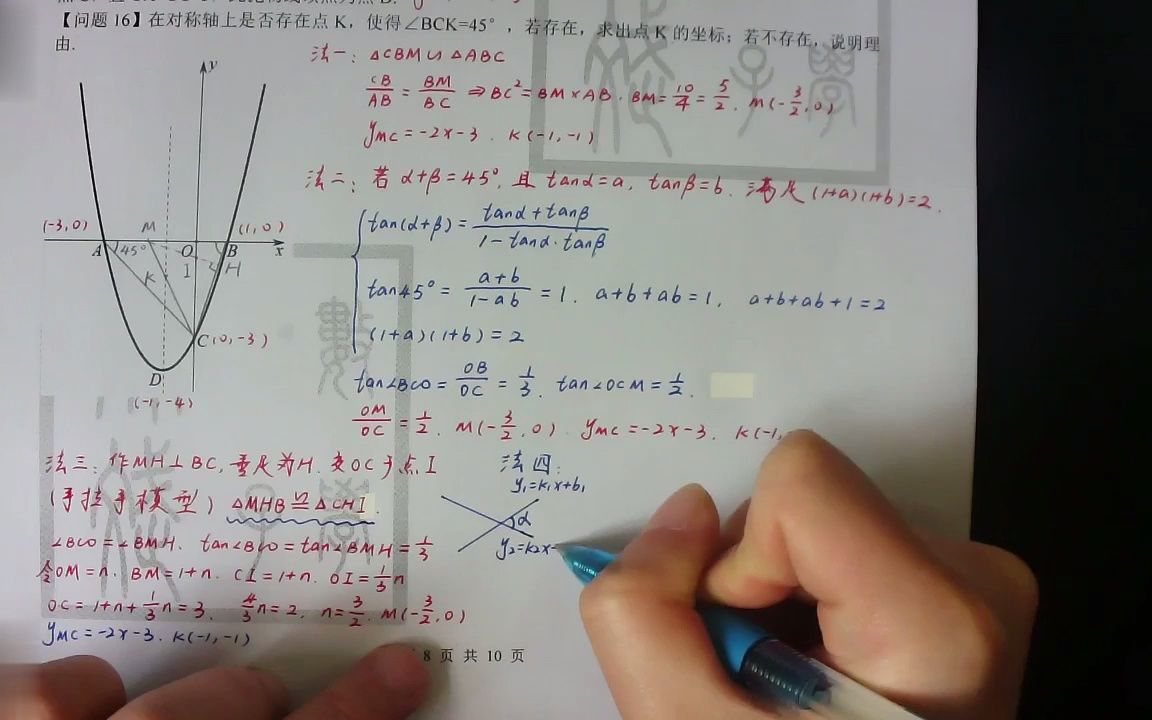 【问题 16】在对称轴上是否存在点 K，使得∠BCK=45°，若存在，求出点 K 的坐标；若不存在，说明理
由.
法一：△CBM∽△ABC
CB/AB = BM/BC ⇒ BC²=BM×AB. BM=10/4=5/2. M(-3/2,0)
yMC=-2x-3. K(-1,-1)
法二：若α+β=45°,且 tanα=a, tanβ=b. 满足(1+a)(1+b)=2.
tan(α+β)=(tanα+tanβ)/(1-tanα·tanβ)
tan45°=(a+b)/(1-ab)=1. a+b+ab=1, a+b+ab+1=2
(1+a)(1+b)=2
tan∠BCO=OB/OC=1/3. tan∠OCM=1/2.
OM/OC=1/2. M(-3/2,0) yMC=-2x-3. K(-1,
y
(-3,0) M (1,0)
A 45° O B x
K I H
C(0,-3)
D
(-1,-4)
法三：作MH⊥BC,垂足为H.交OC于点I
(手拉手模型) △MHB≌△CHI.
∠BCO=∠BMH. tan∠BCO=tan∠BMH=1/3
令OM=n. BM=1+n. CI=1+n. OI=1/3n
OC=1+n+1/3n=3. 4/3n=2. n=3/2. M(-3/2,0)
yMC=-2x-3. K(-1,-1)
法四：
y₁=k₁x+b₁
α
y₂=k₂x-
8 页 共 10 页
數
學
子